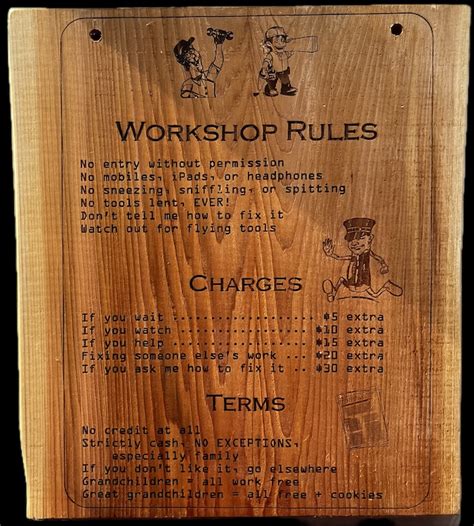 WORKSHOP RULES
No entry without permission
No mobiles, iPads, or headphones
No sneezing, sniffling, or spitting
No tools lent, EVER!
Don't tell me how to fix it
Watch out for flying tools
CHARGES
If you wait .................. $5 extra
If you watch ................. $10 extra
If you help .................. $15 extra
Fixing someone else's work ... $20 extra
If you ask me how to fix it .. $30 extra
TERMS
No credit at all
Strictly cash, NO EXCEPTIONS,
especially family
If you don't like it, go elsewhere
Grandchildren = all work free
Great grandchildren = all free + cookies